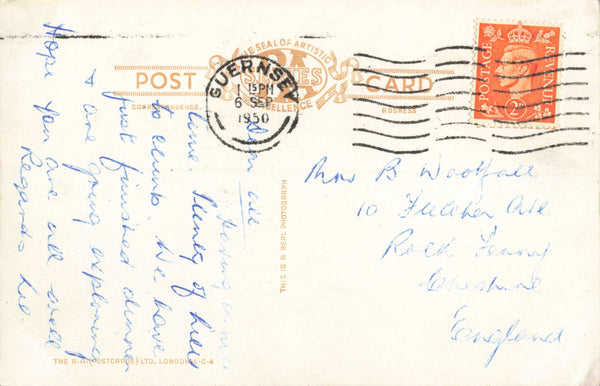 THE SEAL OF ARTISTIC
POST RA SERIES CARD
CORRESPONDENCE. ADDRESS
EXCELLENCE
GUERNSEY
1 15PM
6 SEP
1950
POSTAGE REVENUE
2D
Dear all
Having a nice
time. Plenty of hills
to climb. We have
just finished dinner
& are going exploring
Hope you are all well
Regards
THIS IS A REAL PHOTOGRAPH
Mrs B Woodfall
10 Ave
Rock Ferry
Cheshire
England
THE R.A. (POSTCARDS) LTD., LONDON. E.C.4